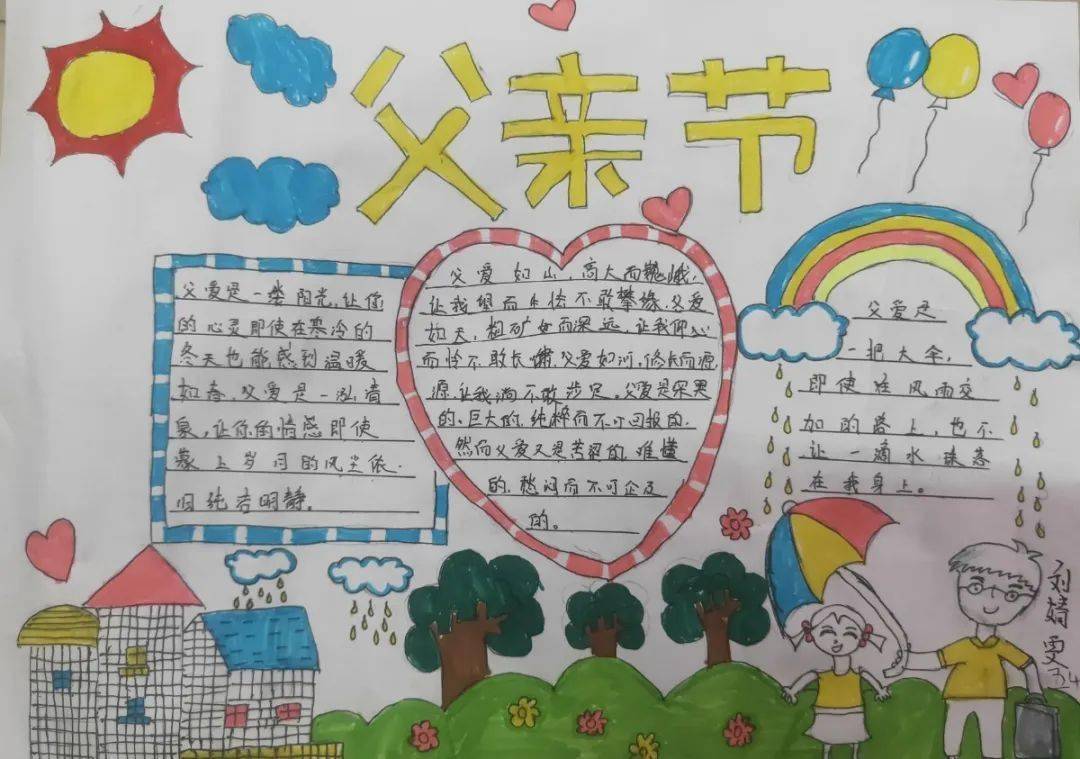 父亲节
父爱是一类阳光,让你
的心灵即使在寒冷的
冬天也能感到温暖
如春,父爱是一泓清
泉,让你的情感即使
蒙上岁月的风尘依
旧纯洁明静。
父爱如山,高大而巍峨,
让我望而生怯不敢攀缘,父爱
如天,粗矿而深远,让我仰心
而怜不敢长啸,父爱如河,修长而源
源,让我淌不敢步足,父爱是深黑
的、巨大的,纯粹而不可回报的,
然而父爱又是苦涩的,难懂
的,愁闷而不可企及
的。
父爱是
一把大伞,
即使在风雨交
加的路上,也不
让一滴水珠落
在我身上。
刘婍雯